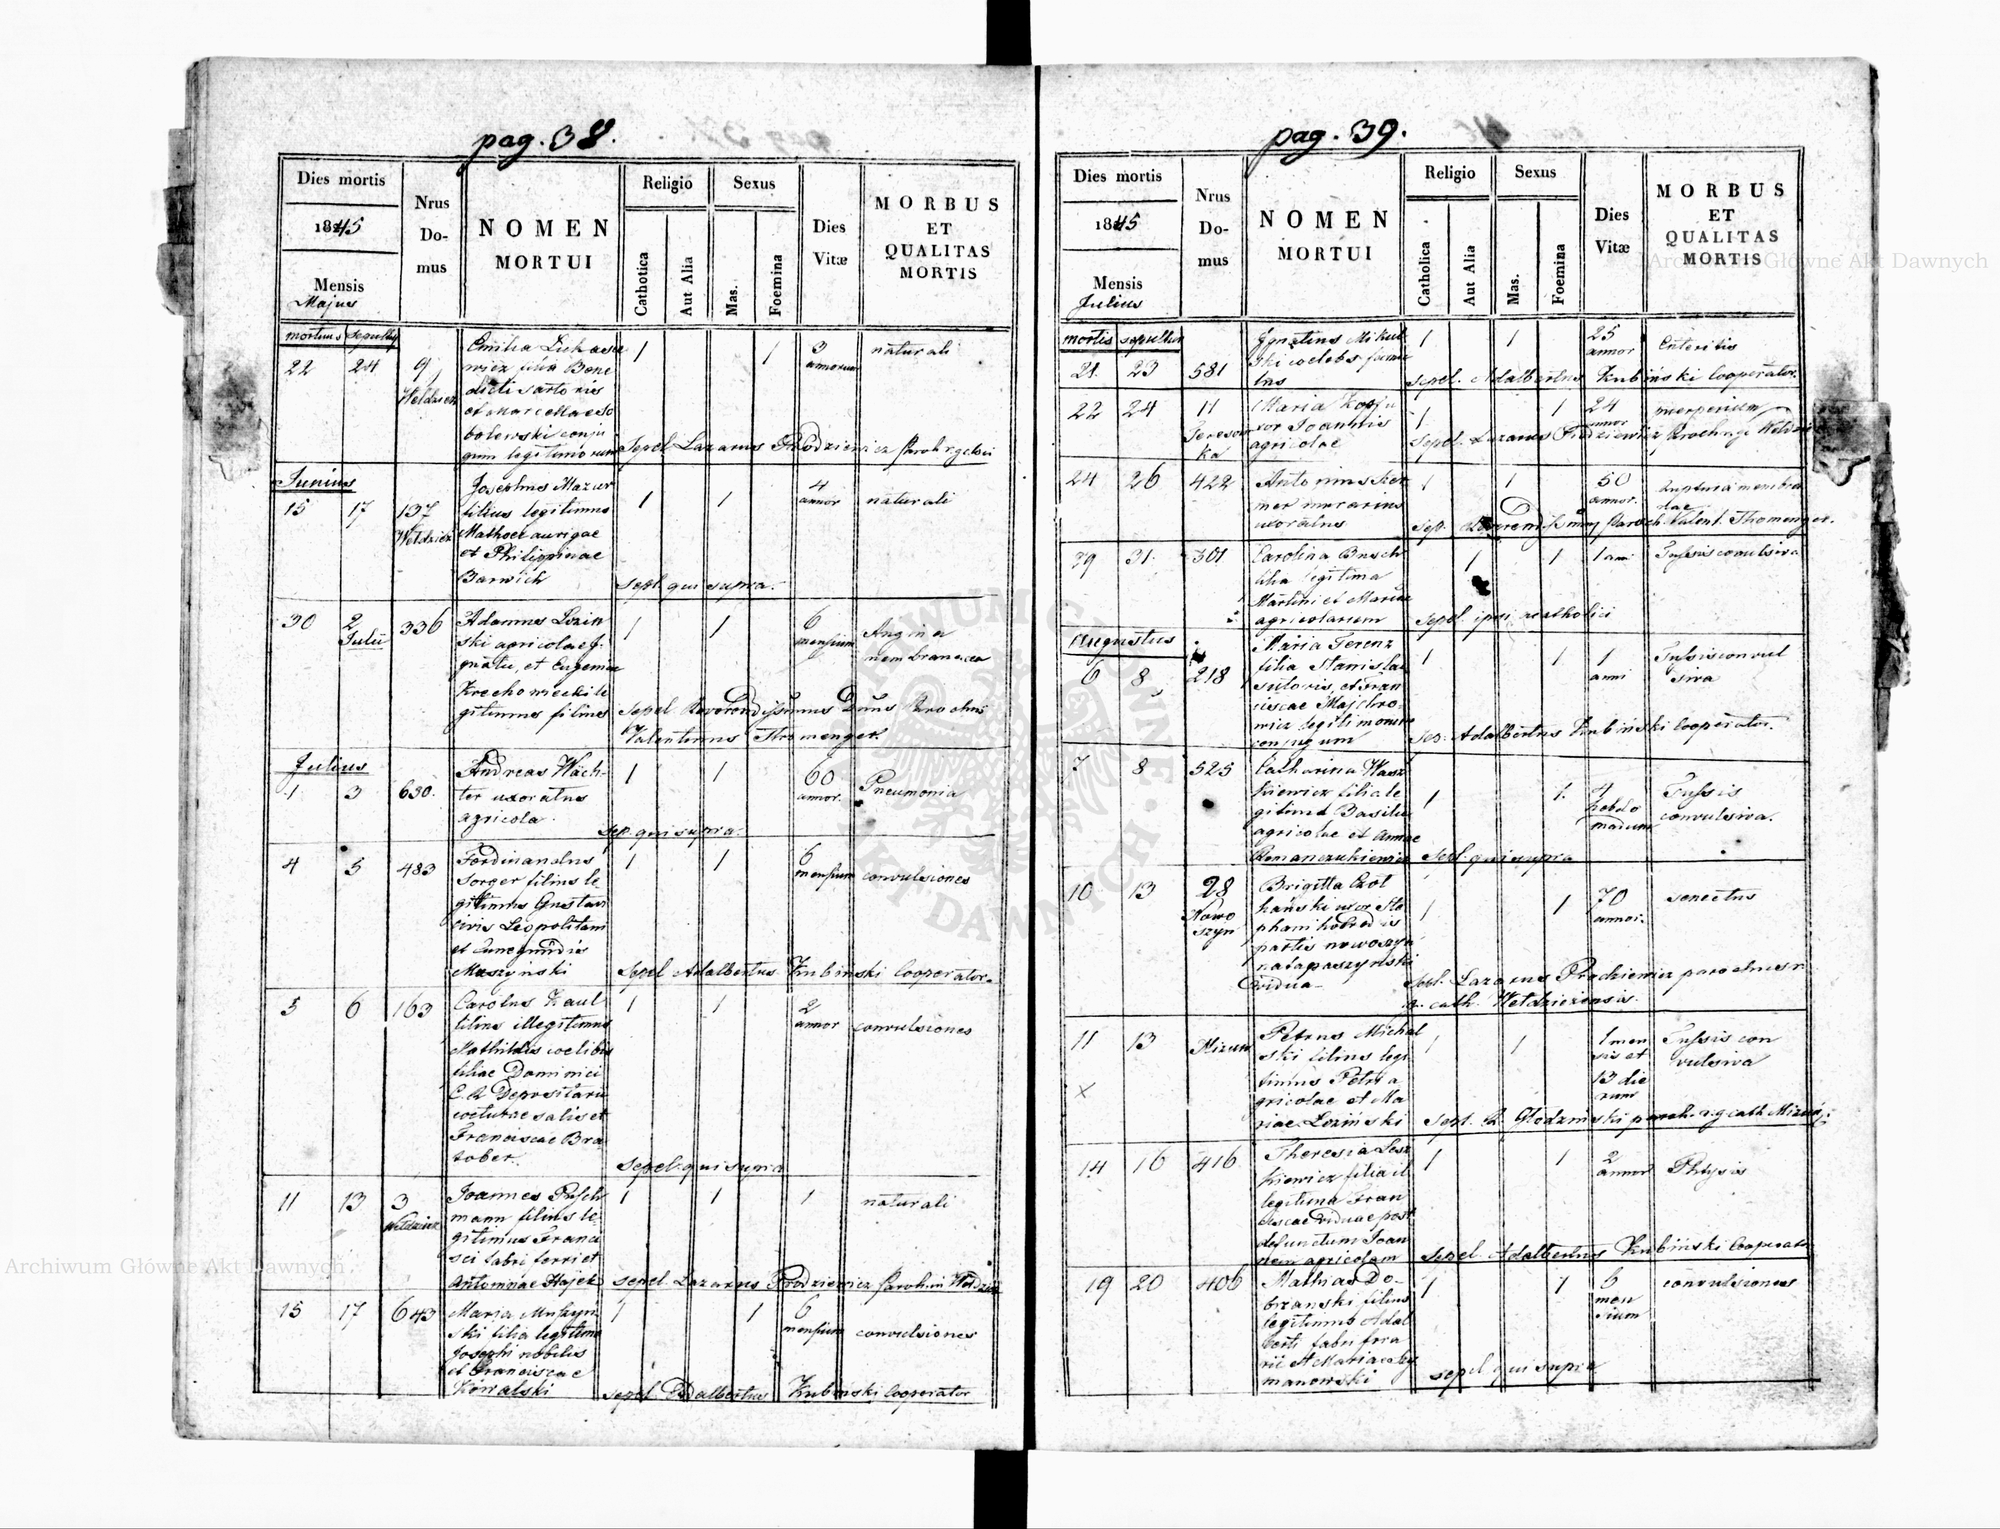 pag. 38.
Dies mortis
1845
Mensis
Majus
Nrus
Do-
mus
NOMEN
MORTUI
Religio
Catholica
Aut Alia
Sexus
Mas.
Foemina
Dies
Vitæ
MORBUS
ET
QUALITAS
MORTIS
mortuus sepultus
22 24 9 Weldzież
Emilia Lukasie
wicz filia Bene
dicti sartoris
et Marcellae So
bolewski conju
gum legitimorum
1 1 3 annorum naturali
Sepel. Lazarus Prodziewicz Paroh
Junius
15 17 137 Weldzież
Josephus Mazur
filius legitimus
Mathaei aurigae
et Philippinae
Barwich
1 1 4 annor naturali
Sepel. qui supra.
30 2 Julii 336
Adamus Lozin
ski agricolae Ig
natii, et Eugeniae
Krechowiecki le
gitimus filius
1 1 6 mensium Angina
membranacea
Sepel. Reverendissimus Dnus Parochus
Valentinus Thomenger.
Julius
1 3 630.
Andreas Wäch-
ter uxoratus
agricola.
1 1 60 annor. Pneumonia
Sep. qui supra.
4 5 483
Ferdinandus
Sorger filius le
gitimus Gustavi
civis Leopolitani
et Cunegundis
Muszyński
1 1 6 mensium convulsiones
Sepel Adalbertus Kubiński Cooperator.
5 6 163
Carolus Kaul
filius illegitimus
Mathildis coelibis
filiae Dominici
C. R. Depositarii
cocturae salis et
Franciscae Bra
tober.
1 1 2 annor convulsiones
Sepel. qui supra
11 13 3 Weldzież
Joannes Pusch
mann filius le
gitimus Franci
sci fabri ferri et
Antoninae Hajek
1 1 1 naturali
Sepel. Lazarus Prodziewicz Parohus Weldzież
15 17 643
Maria Muszyn
ski filia legitima
Josephi nobilis
et Franciscae
Kowalski
1 1 6 mensium convulsiones
Sepel Adalbertus Kubinski Cooperator
pag. 39.
Dies mortis
1845
Mensis
Julius
Nrus
Do-
mus
NOMEN
MORTUI
Religio
Catholica
Aut Alia
Sexus
Mas.
Foemina
Dies
Vitæ
MORBUS
ET
QUALITAS
MORTIS
mortis sepultus
21. 23 581
Ignatius Mikul
ski coelebs famu
lus
1 1 25 annor Enteritis
Sepel. Adalbertus Kubiński Cooperator.
22 24 11
Maria
uxor Joannis
agricolae
1 1 24 annor puerperium
Sepel. Lazarus Prodziewicz Paroch
24 26 422
Antoninus Ker
ner murarius
uxoratus
1 1 50 annor. ruptura membra
nae
Sep. Reverendissimus Paroch. Valent. Thomenger.
39 31. 301
Carolina Busch
filia legitima
Martini et Mariae
agricolarum
1 1 1 ani Tussis convulsiva
Sepel ipsi acatholici
Augustus
6 8 218
Maria Ferenz
filia Stanislai
sutoris, et Fran
ciscae Majchro
wicz legitimorum
conjugum
1 1 1 anni Tussis convul
siva
Sep. Adalbertus Kubiński Cooperator.
7 8 525
Catharina Wasz
kiewicz filia le
gitima Basilii
agricolae et Annae
Romanczukiewicz
1 1. 7 hebdo
madum Tussis
convulsiva.
Sepl. qui supra
10 13 28 Nowo
szyn
Brigitta Czol
hański uxor Ste
phani haeredis
partis nowoszyn
nata paszyński
vidua
1 1 70 annor. senectus
Sepl. Lazarus Prodziewicz parochus r.
g. cath. Weldzieżensis.
11 13 Mizun
Petrus Michal
ski filius legi
timus Petri a
gricolae et Ma
riae Lozinski
1 1 1 men
sis et
13 die
rum Tussis con
vulsiva
Sepl. Glodzinski paroh. r. g. cath Mizuń.
14 16 416
Theresia Lesz
kiewicz filia il
legitima Fran
ciscae viduae post
defunctum Joan
nem agricolam
1 1 2 annor Phtysis
Sepel Adalbertus Kubiński Cooperator
19 20 406
Mathias Do-
brzanski filius
legitimus Adal
berti fabri ferra
rii et Mariae Szy
manowski
1 1 6 men
sium convulsiones
sepel qui supra
Archiwum Główne Akt Dawnych
Archiwum Główne Akt Dawnych
ARCHIWUM GŁÓWNE AKT DAWNYCH